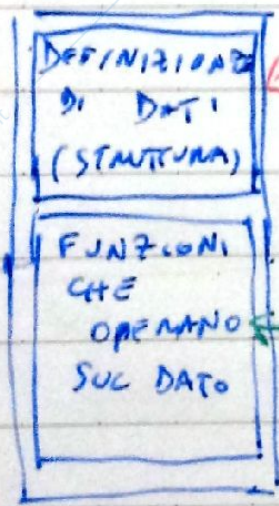 DEFINIZIONE
DI DATI
(STRUTTURA)
FUNZIONI
CHE
OPERANO
SUL DATO